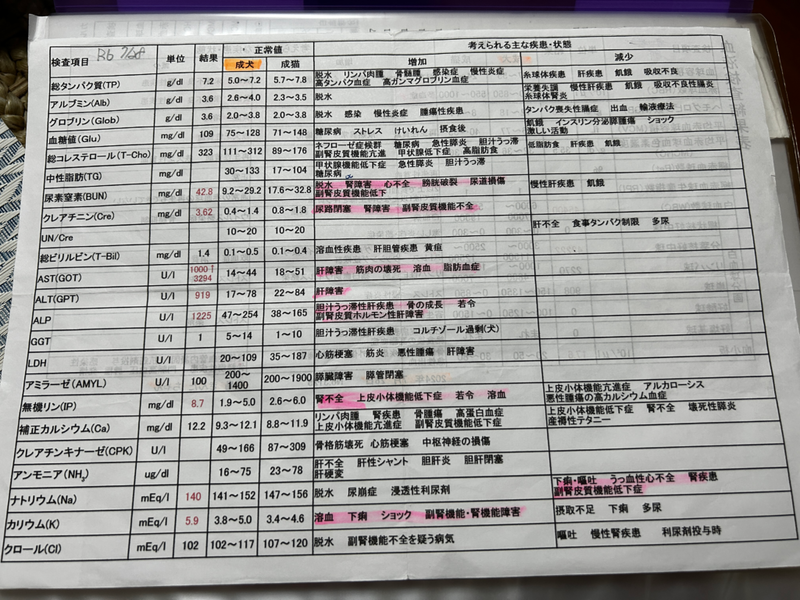 検査項目 R6 7/28 単位 結果 正常値 考えられる主な疾患・状態
成犬 成猫 増加 減少
総タンパク質(TP) g/dl 7.2 5.0～7.2 5.7～7.8 脱水 リンパ肉腫 骨髄腫 感染症 慢性炎症 糸球体疾患 肝疾患 飢餓 吸収不良
高タンパク血症 高ガンマグロブリン血症
アルブミン(Alb) g/dl 3.6 2.6～4.0 2.3～3.5 脱水 栄養失調 慢性肝疾患 飢餓 吸収不良性腸炎
糸球体腎炎
グロブリン(Glob) g/dl 3.6 2.0～3.8 2.0～3.8 脱水 感染 慢性炎症 腫瘍性疾患 タンパク喪失性腸症 出血 輸液療法
血糖値(Glu) mg/dl 109 75～128 71～148 糖尿病 ストレス けいれん 摂食後 飢餓 インスリン分泌膵腫瘍 ショック
激しい活動
総コレステロール(T-Cho) mg/dl 323 111～312 89～176 ネフローゼ症候群 糖尿病 急性膵炎 胆汁うっ滞 低脂肪食 肝疾患 飢餓
副腎皮質機能亢進 甲状腺低下症 高脂肪食
中性脂肪(TG) mg/dl 30～133 17～104 甲状腺機能低下症 急性膵炎 胆汁うっ滞
糖尿病
尿素窒素(BUN) mg/dl 42.8 9.2～29.2 17.6～32.8 脱水 腎障害 心不全 膀胱破裂 尿道損傷 慢性肝疾患 飢餓
副腎皮質機能低下
クレアチニン(Cre) mg/dl 3.62 0.4～1.4 0.8～1.8 尿路閉塞 腎障害 副腎皮質機能不全
UN/Cre 10～20 10～20 肝不全 食事タンパク制限 多尿
総ビリルビン(T-Bil) mg/dl 1.4 0.1～0.5 0.1～0.4 溶血性疾患 肝胆管疾患 黄疸
AST(GOT) U/l 1000↑ 3294 14～44 18～51 肝障害 筋肉の壊死 溶血 脂肪血症
ALT(GPT) U/l 919 17～78 22～84 肝障害
ALP U/l 1225 47～254 38～165 胆汁うっ滞性肝疾患 骨の成長 若令
副腎皮質ホルモン性肝障害
GGT U/l 1 5～14 1～10 胆汁うっ滞性肝疾患 コルチゾール過剰(犬)
LDH U/l 20～109 35～187 心筋梗塞 筋炎 悪性腫瘍 肝障害
アミラーゼ(AMYL) U/l 100 200～1400 200～1900 膵臓障害 膵管閉塞
無機リン(IP) mg/dl 8.7 1.9～5.0 2.6～6.0 腎不全 上皮小体機能低下症 若令 溶血 上皮小体機能亢進症 アルカローシス
悪性腫瘍の高カルシウム血症
補正カルシウム(Ca) mg/dl 12.2 9.3～12.1 8.8～11.9 リンパ肉腫 腎疾患 骨腫瘍 高蛋白血症 上皮小体機能低下症 腎不全 壊死性膵炎
上皮小体機能亢進症 副腎皮質機能低下症 産褥性テタニー
クレアチンキナーゼ(CPK) U/l 49～166 87～309 骨格筋壊死 心筋梗塞 中枢神経の損傷
アンモニア(NH3) ug/dl 16～75 23～78 肝不全 肝性シャント 胆肝炎 胆肝閉塞
肝硬変
ナトリウム(Na) mEq/l 140 141～152 147～156 脱水 尿崩症 浸透性利尿剤 下痢・嘔吐 うっ血性心不全 腎疾患
副腎皮質機能低下症
カリウム(K) mEq/l 5.9 3.8～5.0 3.4～4.6 溶血 下痢 ショック 副腎機能・腎機能障害 摂取不足 下痢 多尿
クロール(Cl) mEq/l 102 102～117 107～120 脱水 副腎機能不全を疑う病気 嘔吐 慢性腎疾患 利尿剤投与時